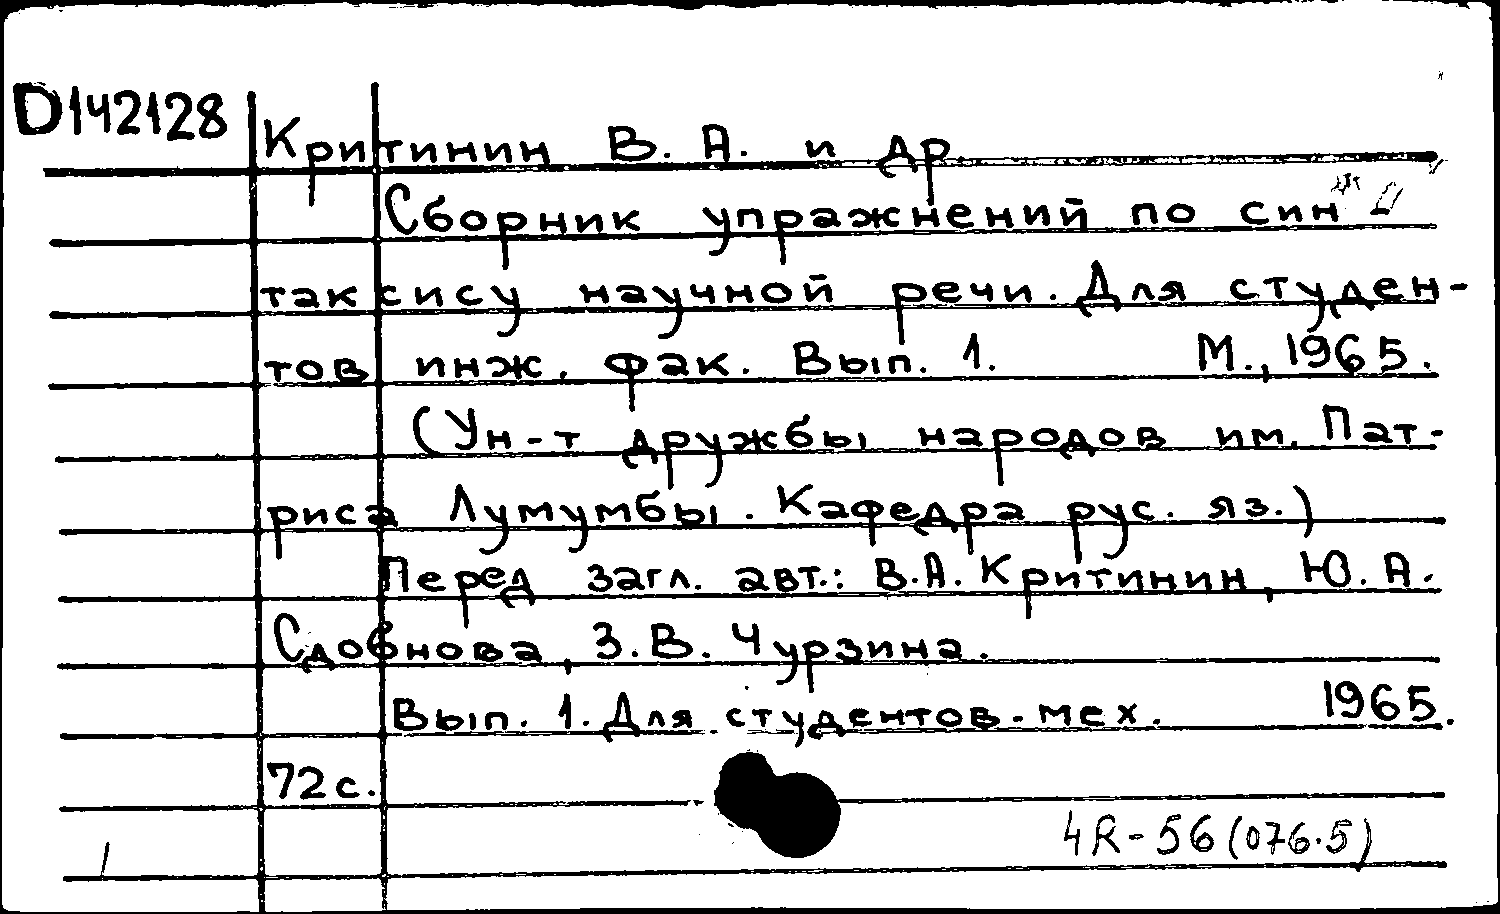 D142128
Критинин В. А. и др.
Сборник упражнений по син-
таксису научной речи. Для студен-
тов инж. фак. Вып. 1. М., 1965.
(Ун-т дружбы народов им. Пат-
риса Лумумбы. Кафедра рус. яз.)
Перед загл. авт.: В.А. Критинин, Ю. А.
Сдобнова, З. В. Чурзина.
Вып. 1. Для студентов-мех. 1965.
72 с.
4R-56(076.5)